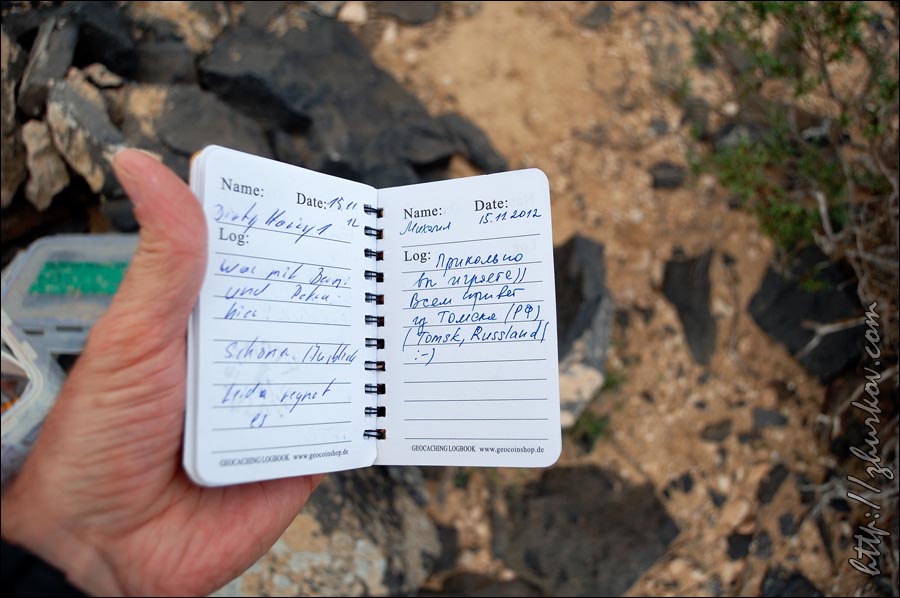 Name:
Date: 15.11
12
Log:
war mit
und Petra
hier.
Schöner
Leider regnet
es.
GEOCACHING LOGBOOK www.geocoinshop.de
Name: Date:
Михаил 15.11.2012
Log: Прикольно
вы играете))
Всем привет
из Томска (РФ)
(Tomsk, Russland)
:-)
GEOCACHING LOGBOOK www.geocoinshop.de
http://zhurkov.com